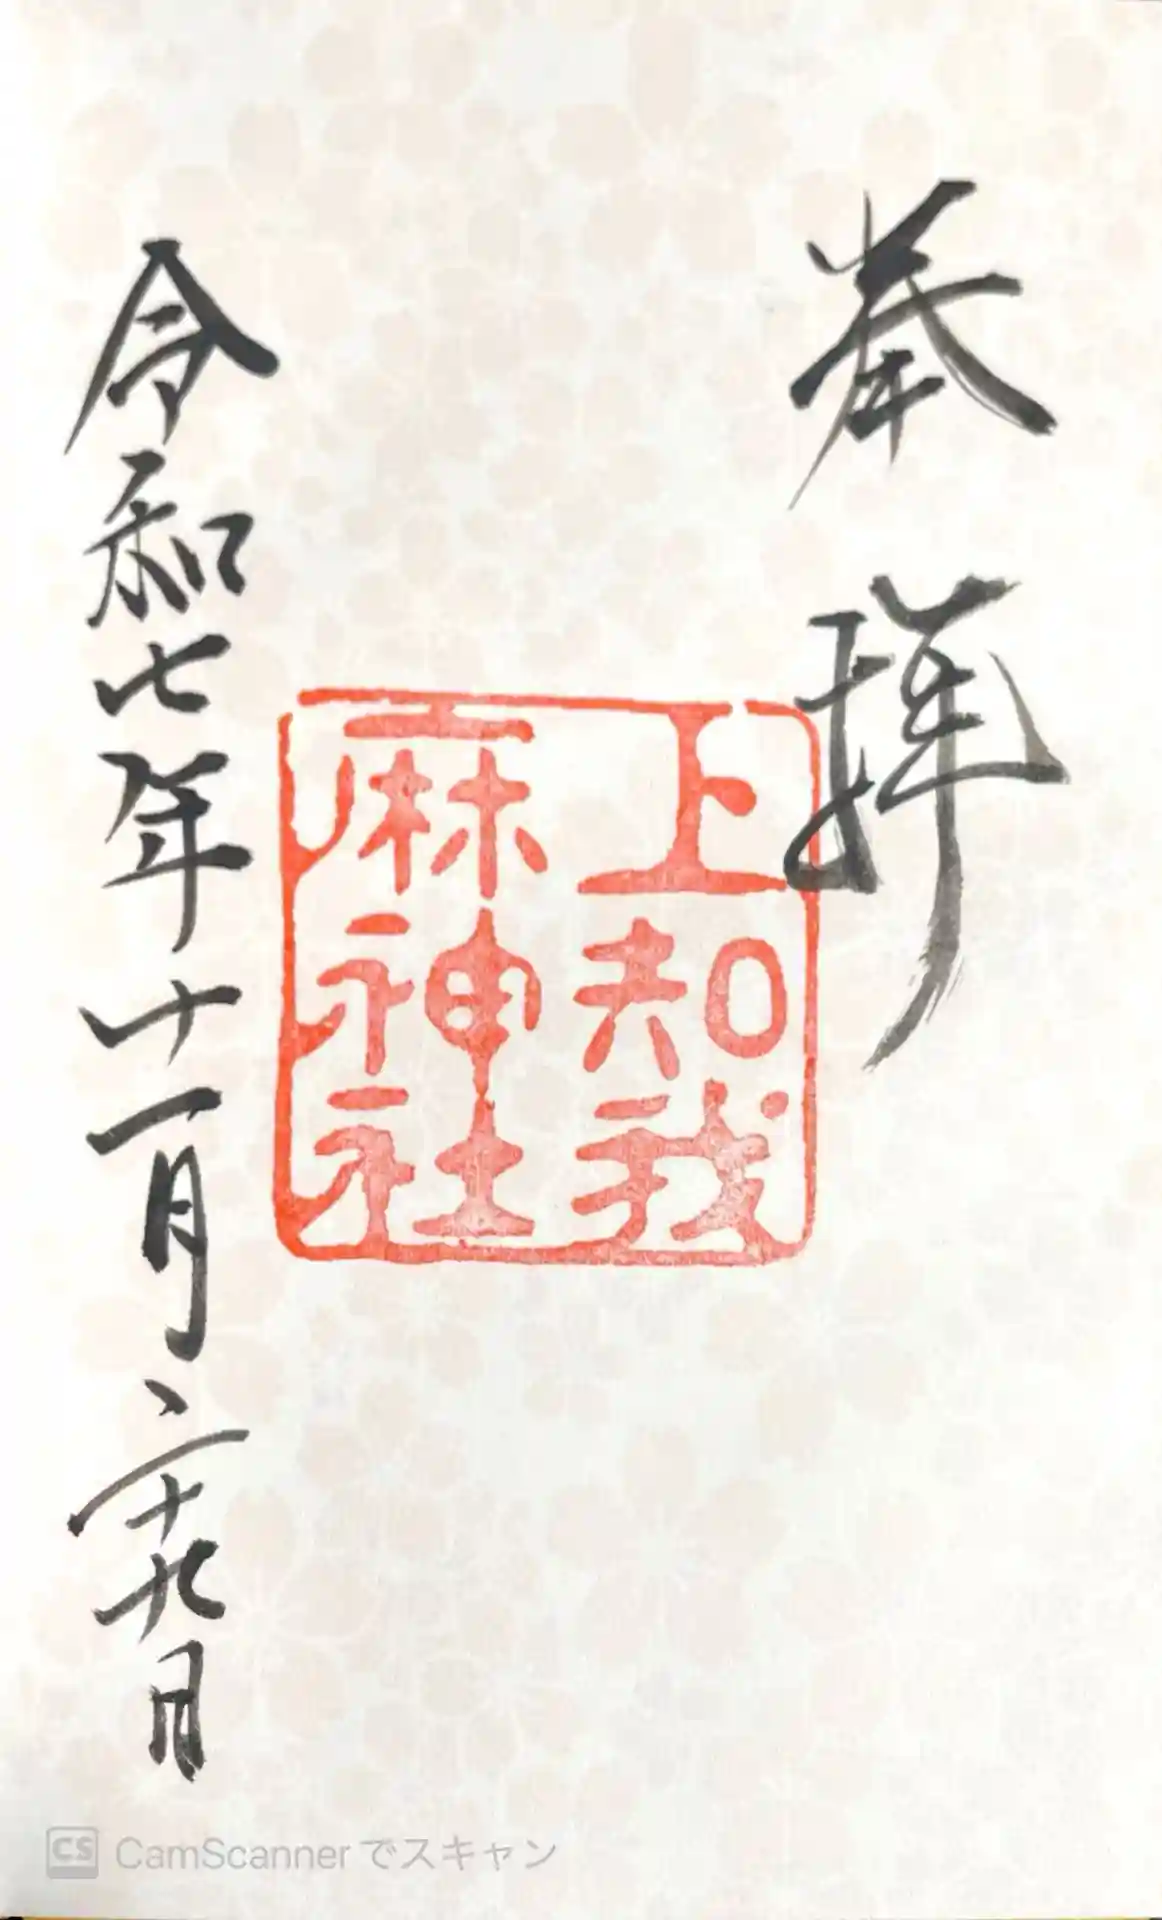 奉拝
上知我
麻神社
令和七年十一月二十九日
CS CamScannerでスキャン